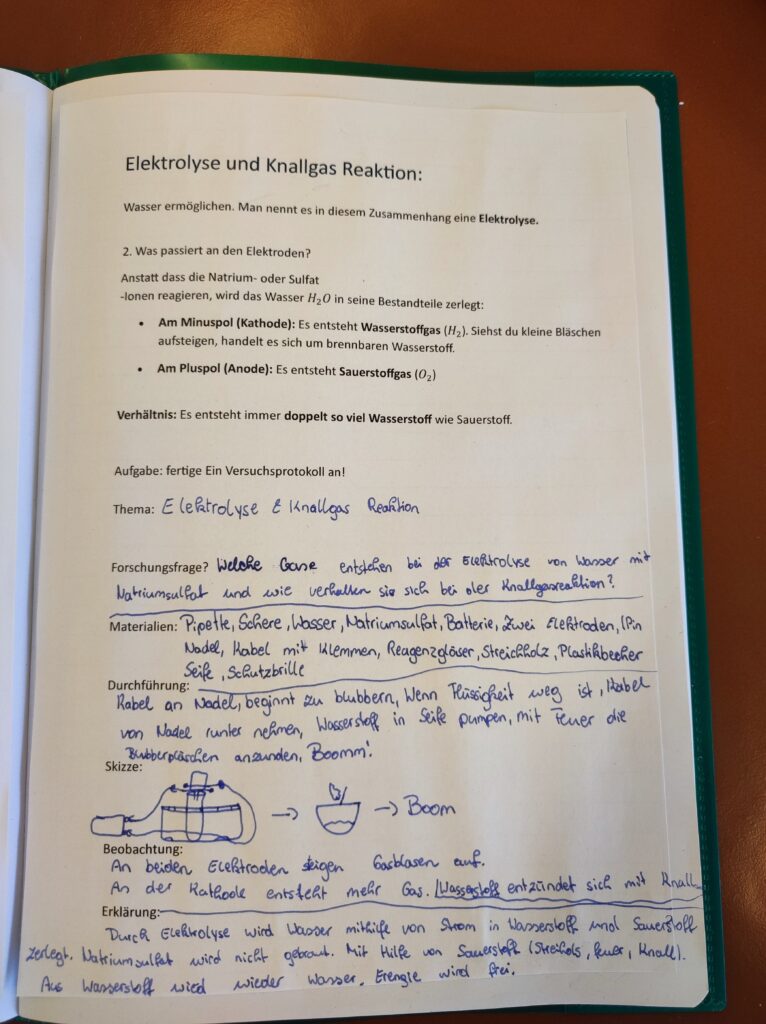 Elektrolyse und Knallgas Reaktion:
Wasser ermöglichen. Man nennt es in diesem Zusammenhang eine Elektrolyse.
2. Was passiert an den Elektroden?
Anstatt dass die Natrium- oder Sulfat
-Ionen reagieren, wird das Wasser H₂O in seine Bestandteile zerlegt:
• Am Minuspol (Kathode): Es entsteht Wasserstoffgas (H₂). Siehst du kleine Bläschen
aufsteigen, handelt es sich um brennbaren Wasserstoff.
• Am Pluspol (Anode): Es entsteht Sauerstoffgas (O₂)
Verhältnis: Es entsteht immer doppelt so viel Wasserstoff wie Sauerstoff.
Aufgabe: fertige Ein Versuchsprotokoll an!
Thema: Elektrolyse & Knallgas Reaktion
Forschungsfrage? Welche Gase entstehen bei der Elektrolyse von Wasser mit
Natriumsulfat und wie verhalten sie sich bei der Knallgasreaktion?
Materialien: Pipette, Schere, Wasser, Natriumsulfat, Batterie, Zwei Elektroden, (Pin
Nadel, Kabel mit Klemmen, Reagenzgläser, Streichholz, Plastikbecher
Seife, Schutzbrille
Durchführung:
Kabel an Nadel, beginnt zu blubbern, Wenn Flüssigkeit weg ist, Kabel
von Nadel runter nehmen, Wasserstoff in Seife pumpen, mit Feuer die
anzunden, Boomm!
Skizze:
→ → Boom
Beobachtung:
An beiden Elektroden steigen Gasblasen auf.
An der Kathode entsteht mehr Gas. Wasserstoff entzündet sich mit Knall
Erklärung:
Durch Elektrolyse wird Wasser mithilfe von Strom in Wasserstoff und Sauerstoff
zerlegt. Natriumsulfat wird nicht gebraut. Mit Hilfe von Sauerstoff (Streihols, feuer, Knall).
Aus Wasserstoff wied wieder Wasser. Erengie wird frei.